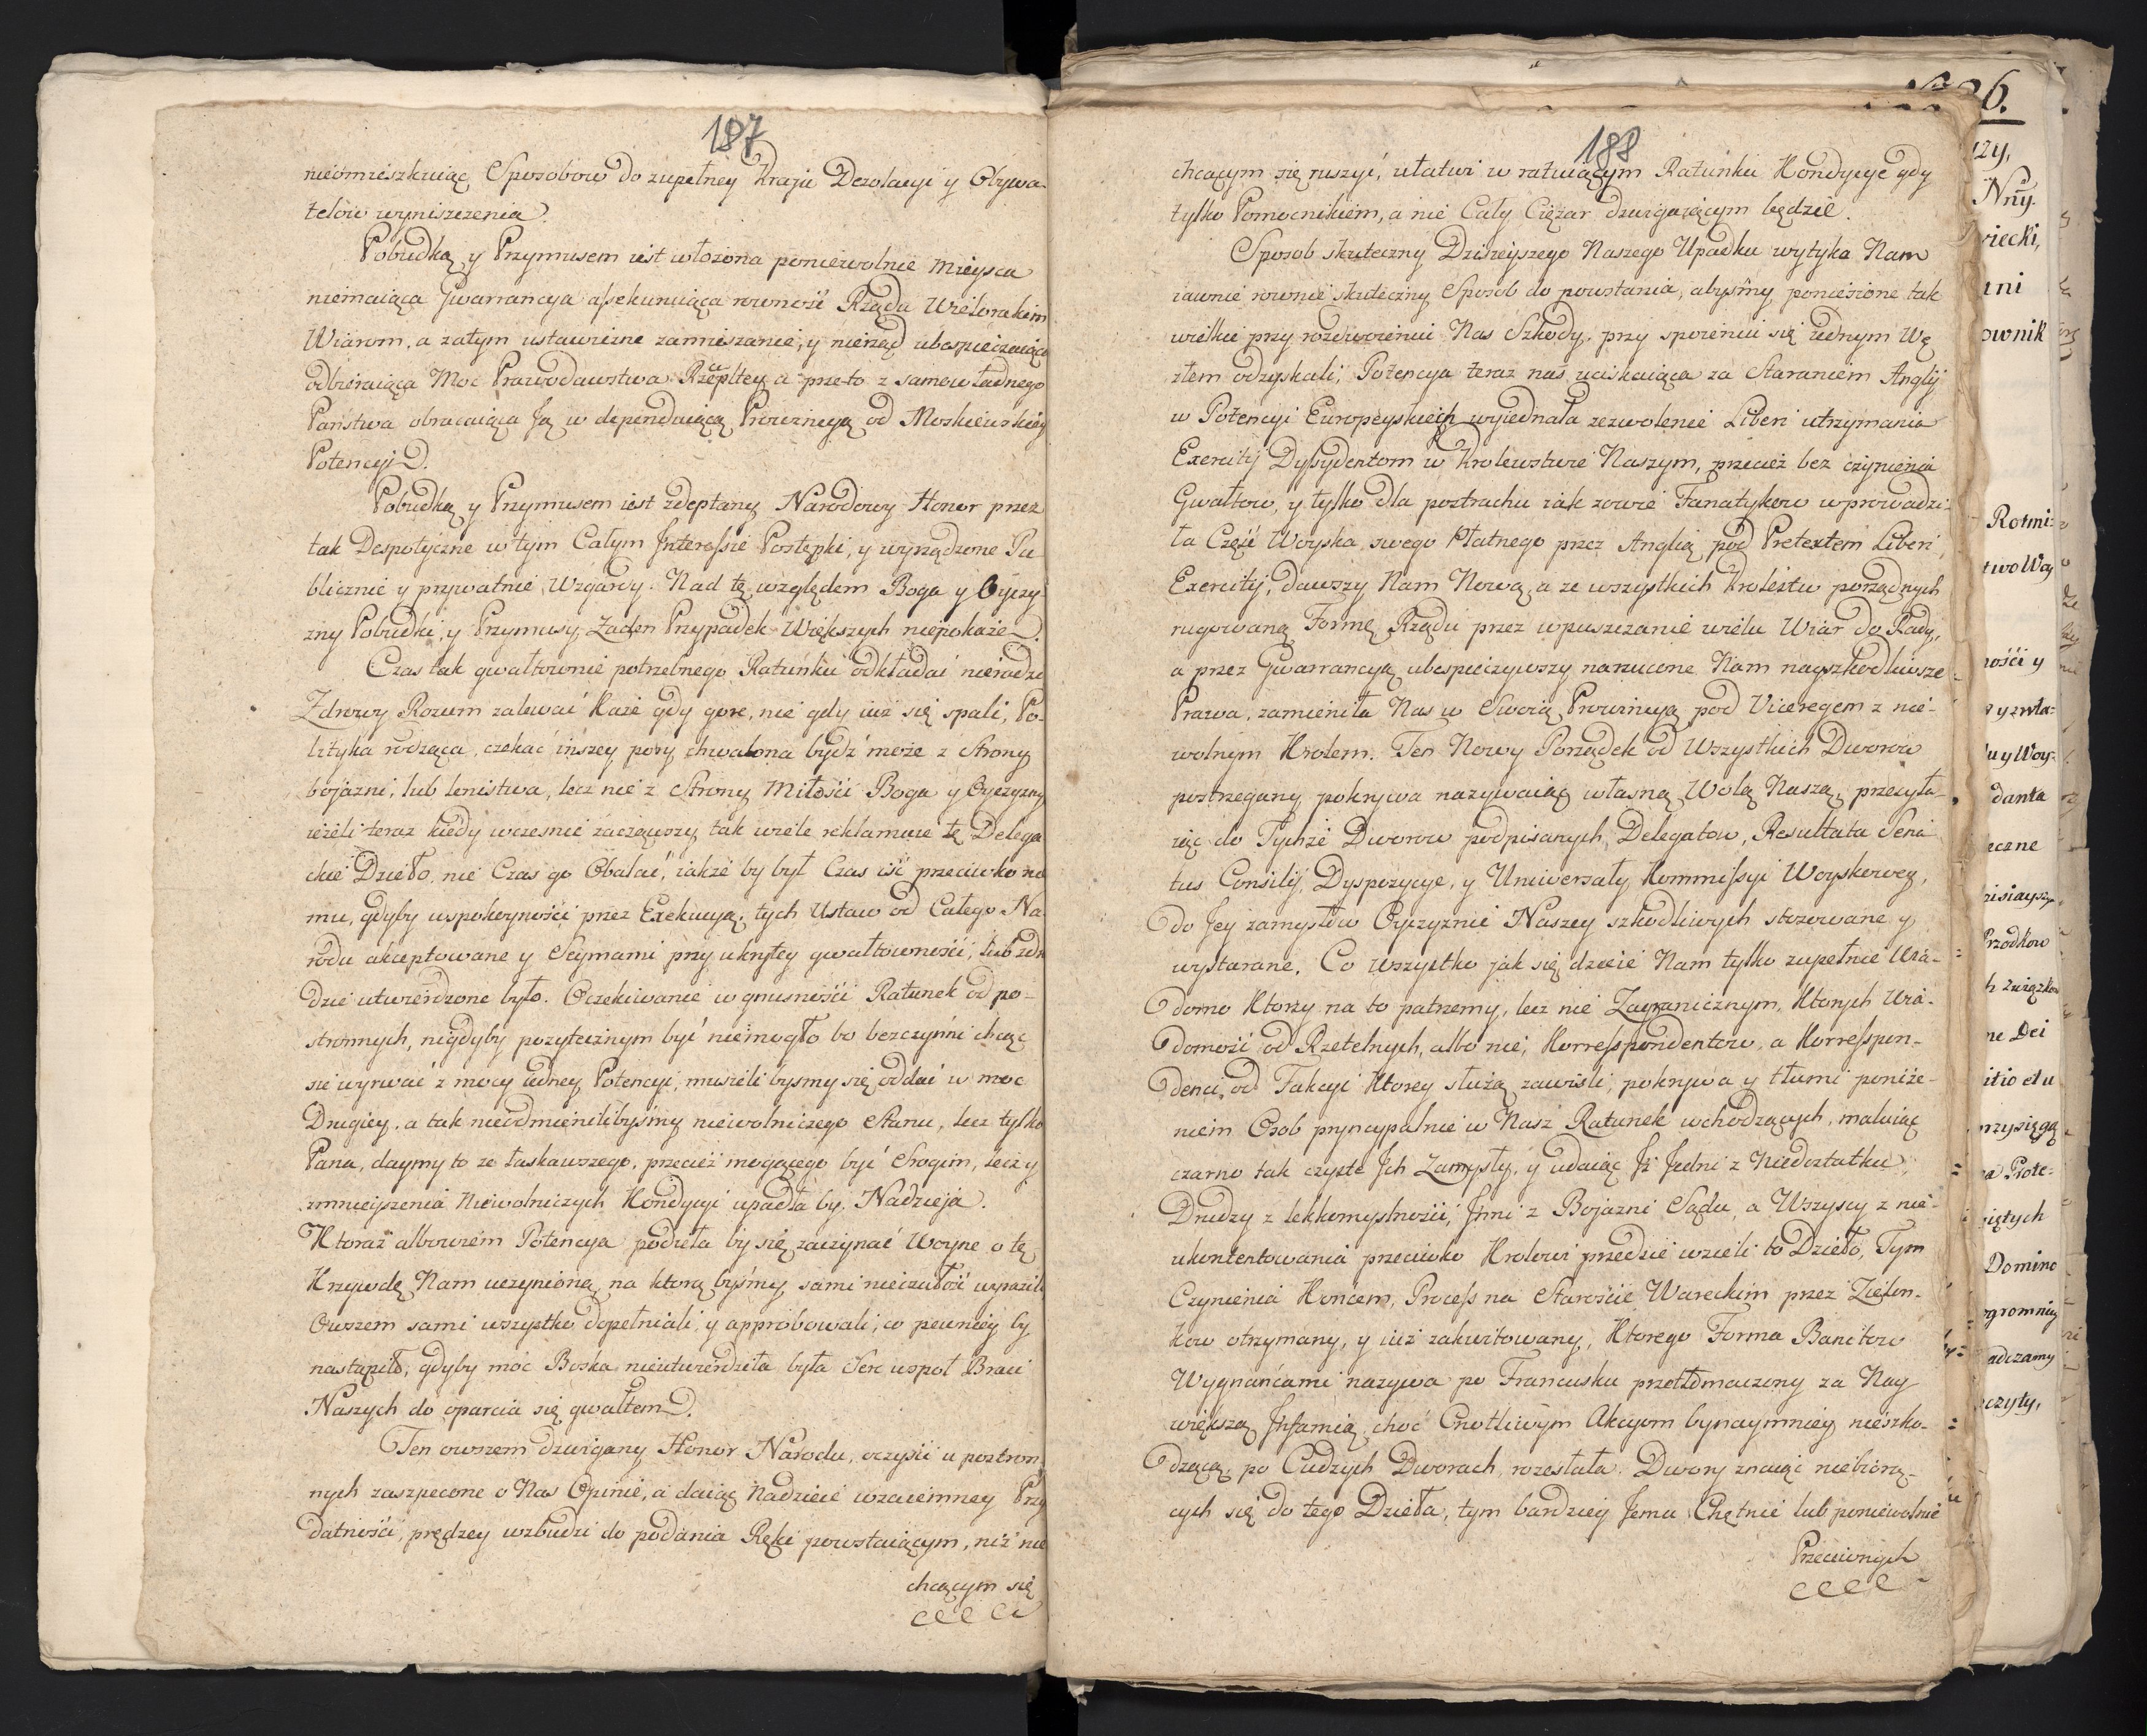 187
nieomieszkuiąc Sposobow do zupełney Kraju Dezolacyi y Obywa-
telow wyniszczenia.
Pobudką y Przymusem iest włożona poniewolnie mieysca
niemaiąca Gwarrancya assekuruiąca rowność Rządu Wielorakim
Wiarom, a zatym ustawiczne zamieszanie, y nierząd ubespieczaiąca
odbieraiąca Moc Prawodawstwa Rzeczpltey a prze-to z samowładnego
Państwa obracaiąca Ją w dependuiącą Prowincyą od Moskiewskiey
Potencyi.
Pobudką y Przymusem iest zdeptany Narodowy Honor przez
tak Despotyczne w tym Całym Interessie Postępki, y wyrządzone Pu
blicznie y prywatnie Wzgardy. Nad tę względem Boga y Oyczy
zny Pobudki, y Przymusy Żaden Przypadek Większych niepokaże.
Czas tak gwałtownie potrzebnego Ratunku odkładać nieradzi
Zdrowy Rozum zalewać każe gdy gore, nie gdy iuż się spali, Po-
lityka rodząca, czekać inszey pory, chwalona bydź może z Strony
bojazni, lub lenistwa, lecz nie z Strony Miłości Boga y Oyczyzny
ieżeli teraz kiedy wczesnie zacząwszy tak wiele reklamuie tę Delega
ckie Dzieło, nie Czas go Obalać, iakże by był Czas iść przeciwko ne
mu, gdyby uspokoyności przez Exekucyą tych Ustaw od Całego Na
rodu akceptowane y Seymami przy ukrytey gwałtowności, lub zdra
dzie utwierdzone było. Oczekiwanie w gnusności Ratunek od po-
stronnych, nigdyby pozytecznym być niemogło bo bezczynni chcąc
sie wyrwać z mocy iedney Potencyi, musieli bysmy się oddać w moc
Drugiey, a tak nieodmienilibyśmy niewolniczego Stanu, lecz tylko
Pana, daymy to ze łaskawszego, przecież mogącego być Srogim, lecz y
zmnieyszenia Niewolniczych Kondycyi upadła by, Nadzieja.
Ktoraż albowiem Potencya podieła by się zaczynać Woyne o tę
Krzywdę Nam uczynioną, na ktorą byśmy sami nieczułość wyrazili
Owszem sami wszystko dopełniali, y approbowali, co pewniey by
nastąpiło, gdyby moc Boska nieutwierdziła była Serc wspoł Braci
Naszych do oparcia się gwałtem.
Ten owszem dzwigany Honor Narodu, oczyści u postron
nych zaszpecone o Nas Opinie, a daiąc Nadzieie wzaiemney Przy
datności, prędzey wzbudzi do podania Ręki powstaiącym, niż nie
chcącym się

188
chcącym się ruszyć, ułatwi w ratuiącym Ratunku Kondycye gdy
tylko Pomocnikiem, a nie Cały Ciężar dzwigaiącym będzie.
Sposob skuteczny Dzisieyszego Naszego Upadku wytyka Nam
iawnie rownie skuteczny Sposob do powstania, abyśmy poniesione tak
wielkie przy rozdwoieniu Nas Szkody, przy spoieniu się iednym Wę
złem odzyskali, Potencya teraz nas uciskaiąca za Staraniem Anglij
w Potencyi Europeyskieych wyiednała zezwolenie Liberi utrzymania
Exercitij Dyssydentom w Krolewstwie Naszym, przecież bez czynienia
Gwałtow, y tylko dla postrachu iak zowie Fanatykow wprowadzi-
ła Część Woyska swego Płatnego przez Anglią pod Pretextem Liberi
Exercitij, dawszy Nam Nową, a ze wszystkich Krolestw porządnych
rugowaną Formę Rządu przez wpuszczanie wielu Wiar do Rady,
a przez Gwarrancyą ubespieczywszy narzucone Nam nayszkodliwsze
Prawa, zamieniła Nas w Swoią Prowincyą pod Viceregem z nie-
wolnym Krolem. Ten Nowy Porządek od Wszystkich Dworow
postrzegany pokrywa nazywaiąc własną Wolą Naszą, przesyła-
iąc do Tychże Dworow podpisanych Delegatow, Resultata Sena
tus Consilij, Dyspozycye, y Uniwersały Kommissyi Woyskowey,
do Jey zamysłow Oyczyznie Naszey szkodliwych stosowane y
wystarane, Co wszystko jak się dzieie Nam tylko zupełnie Wia-
domo Ktorzy na to patrzemy, lecz nie Zagranicznym, Ktorych Wia-
domość od Rzetelnych, albo nie, Korresspondentow, a Korresspon-
denci od Fakcyi Ktorey służą zawisli, pokrywa y tłumi poniże-
niem Osob pryncypalnie w Nasz Ratunek wchodzących, maluiąc
czarno tak czyste Ich Zamysły, y udaiąc Iż Jedni z Niedostatku
Drudzy z lekkomyslności, Inni z Bojazni Sądu, a Wszyscy z nie-
ukontentowania przeciwko Krolowi przedsie wzieli to Dzieło, Tym
Czynienia Końcem, Process na Starościе Wareckim przez Zielin-
kow otrzymany, y iuż zakwitowany, Ktorego Forma Banitow
Wygnańcami nazywa po Francusku przetłomaczony za Nay
większą Infamią, choć Cnotliwym Akcyom bynaymniey nieszko-
dzącą, po Cudzych Dworach, rozesłała. Dwory znaiąc niebiorą-
cych się do tego Dzieła, tym bardziey Jemu Chętnie lub poniewolnie
Przeciwnych

26.
Nny.
ownik
Rotmi:
ości y
danta
Przodkow
ne Dei
itio et u
rzysięgą
Domino
ogromniey
adczamy
czyty,